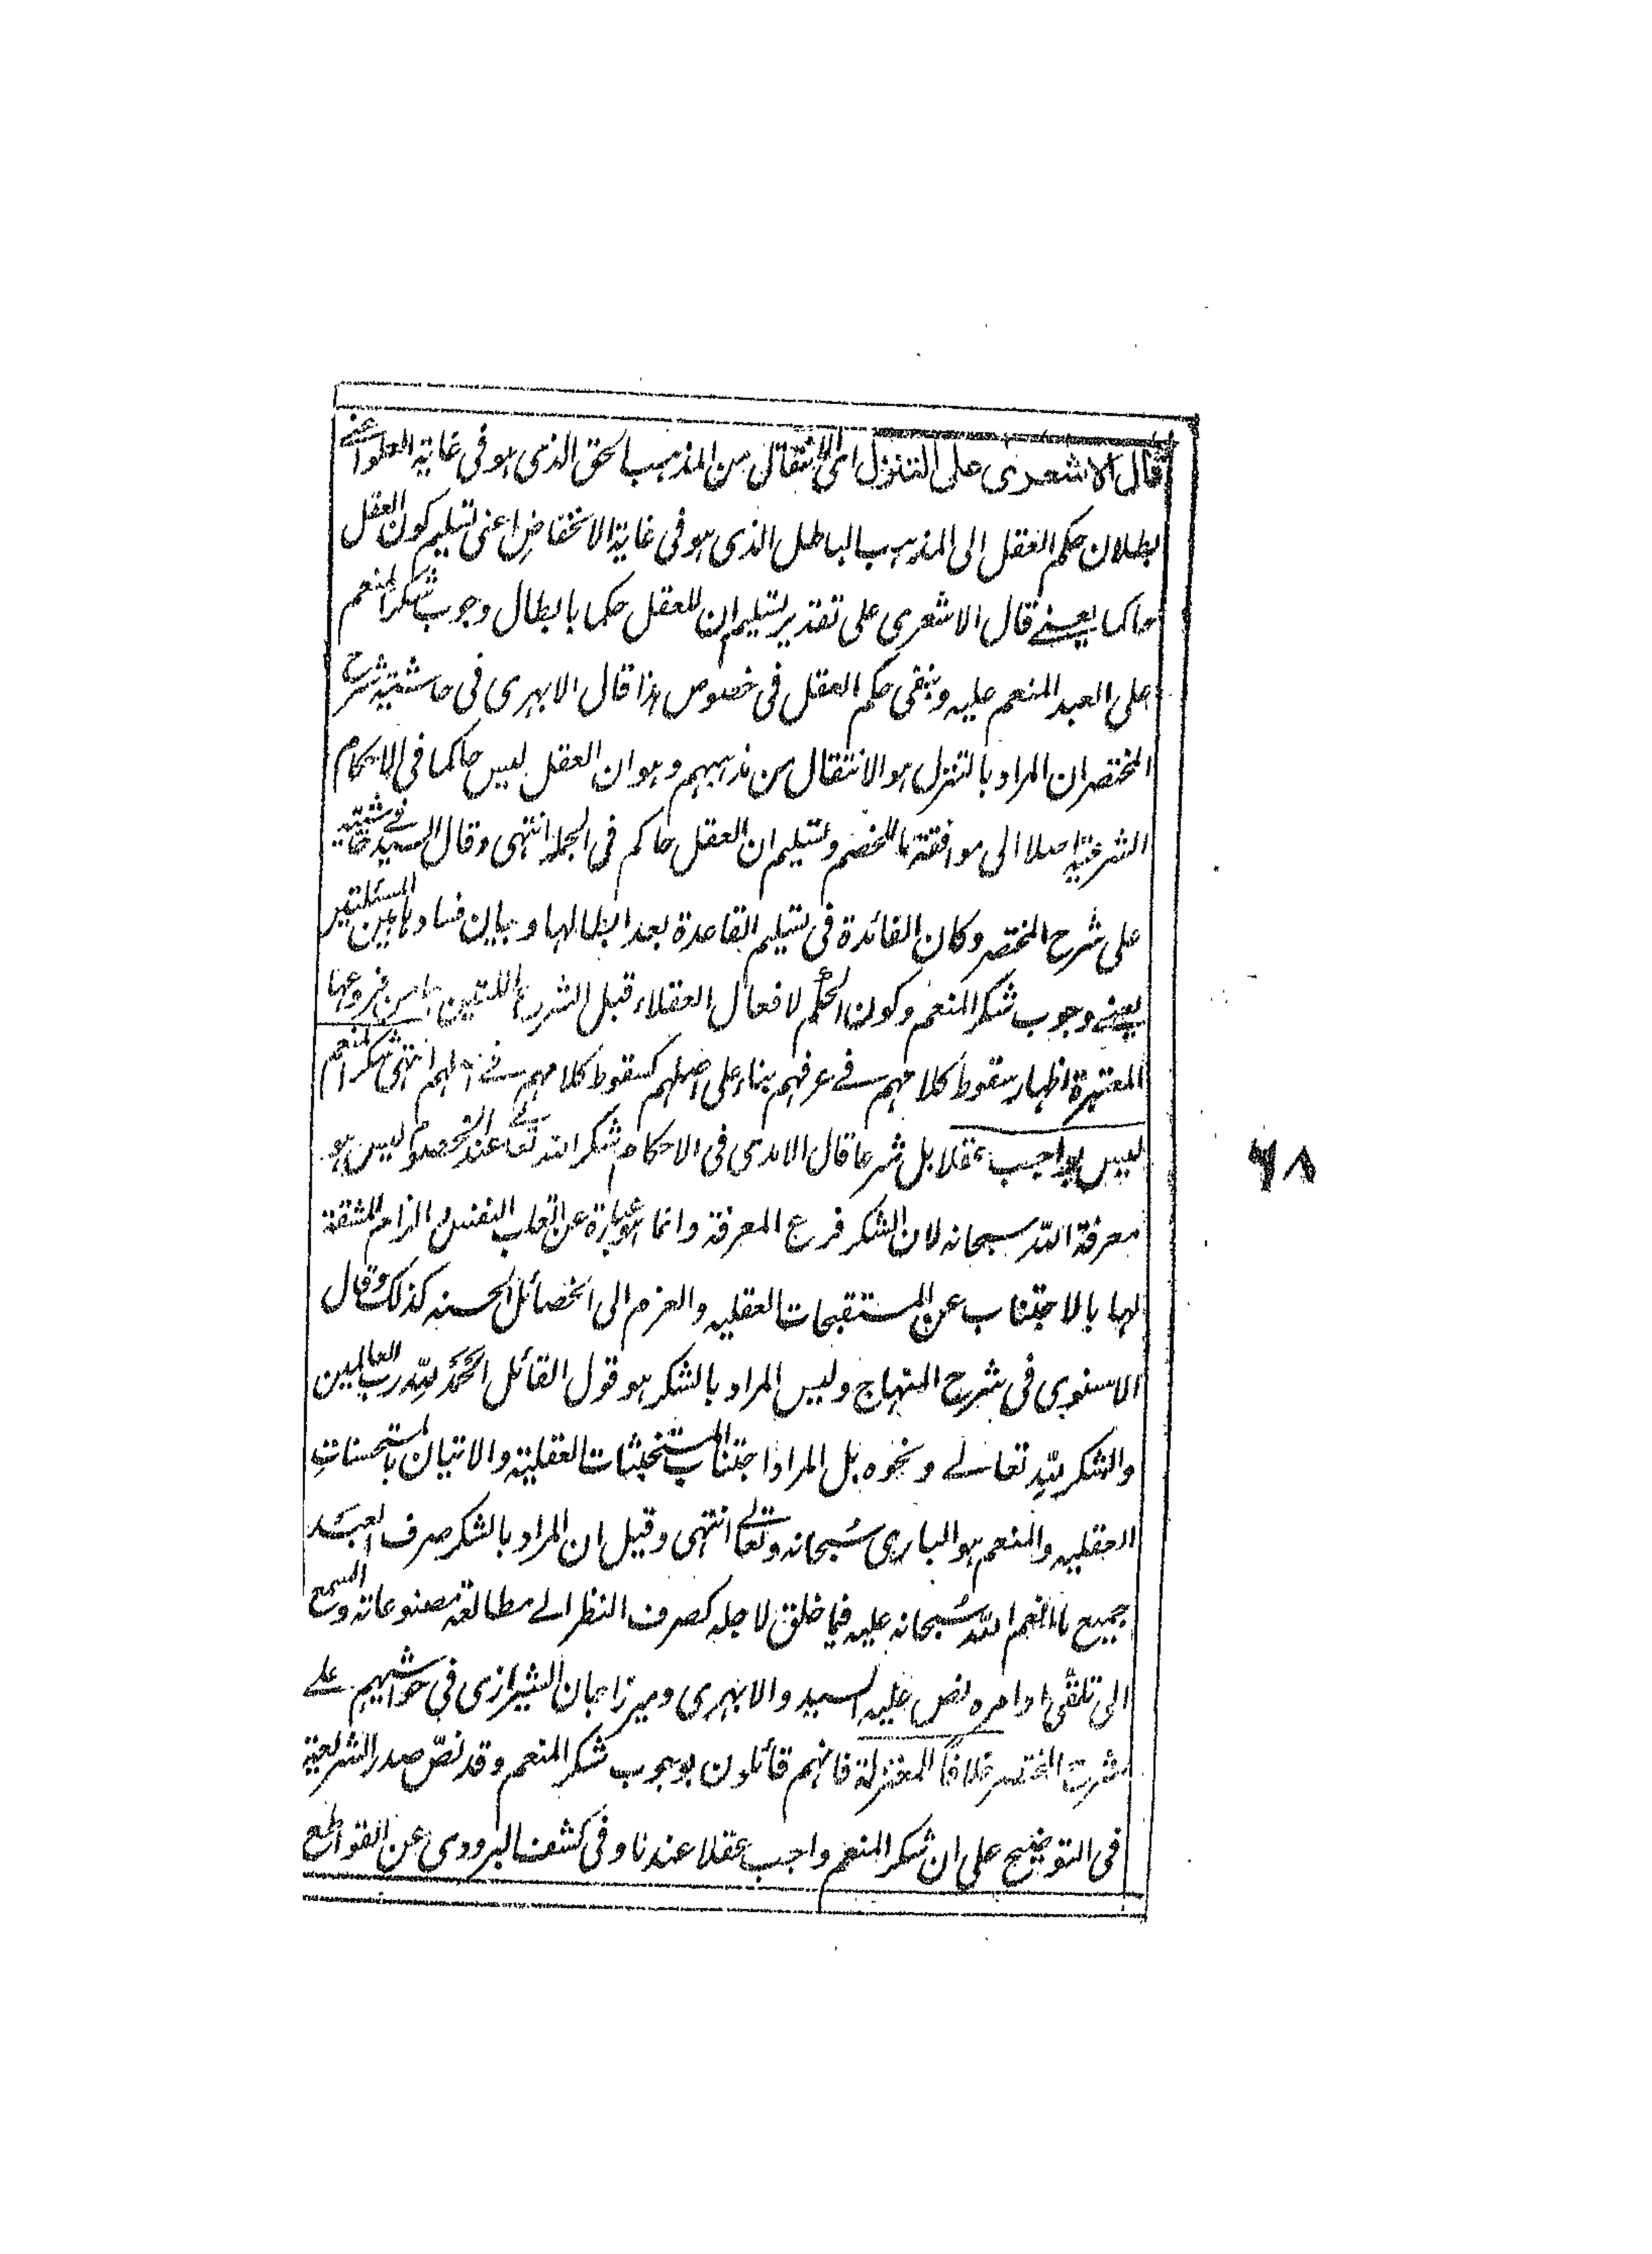 قال الاشعرى على التنزل اى الانتقال من المذهب الحق الذى هو فى غاية العلو اعنے
بطلان حكم العقل الى المذهب الباطل الذى هو فى غاية الانخفاض اعنى تسليم كون العقل
حاكما يعنے قال الاشعرى على تقدير تسليم ان للعقل حكما بابطال وجوب شكر المنعم
على العبد المنعم عليه وبنفى حكم العقل فى خصوص هذا قال الابهرى فى حاشية شرح
المختصر ان المراد بالتنزل هو الانتقال من مذهبهم وهو ان العقل ليس حاكما فى الاحكام
الشرعية اصلا الى موافقة ما للخصم وتسليم ان العقل حاكم فى الجملة انتهى وقال السيد فے حاشيته
على شرح المختصر وكان الفائدة فى تسليم القاعدة بعد ابطالها وبيان فساد هاتين المسئلتين
يعنے وجوب شكر المنعم وكون الحكم لافعال العقلاء قبل الشرع اللتين هما من فروعها
المعتبرة اظهار سقوط كلامهم فے عرفهم بناء على اصلهم كسقوط كلامهم فے اصلهم انتهى شكر المنعم
ليس بواجب عقلا بل شرعا قال الامدى فى الاحكام شكر الله تعالے عند الخصوم ليس هو
معرفة الله سبحانه لان الشكر فرع المعرفة وانما هو عبارة عن اتعاب النفس والزام المشقة
لها بالاجتناب عن المستقبحات العقليه والعزم الى الخصائل الحسنه كذلك وقال
الاسنوى فى شرح المنهاج وليس المراد بالشكر هو قول القائل الحمد لله رب العالمين
والشكر لله تعالے ونحوه بل المراد اجتناب المستخبثات العقلية والاتيان بالمستحسنات
العقليه والمنعم هو البارى سبحانه وتعالے انتهى وقيل ان المراد بالشكر صرف العبد
جميع ما انعم الله سبحانه عليه فيما خلق لاجله كصرف النظر الے مطالعة مصنوعاته والسمع
الى تلقى اوامره نص عليه السيد والابهرى وميرزا جان الشيرازى فى حواشيهم علے
شرح المختصر خلافا للمعتزلة فانهم قائلون بوجوب شكر المنعم وقد نص صدر الشريعة
فى التوضيح على ان شكر المنعم واجب عقلا عندنا وفى كشف البزودى عن القواطع
٦٨